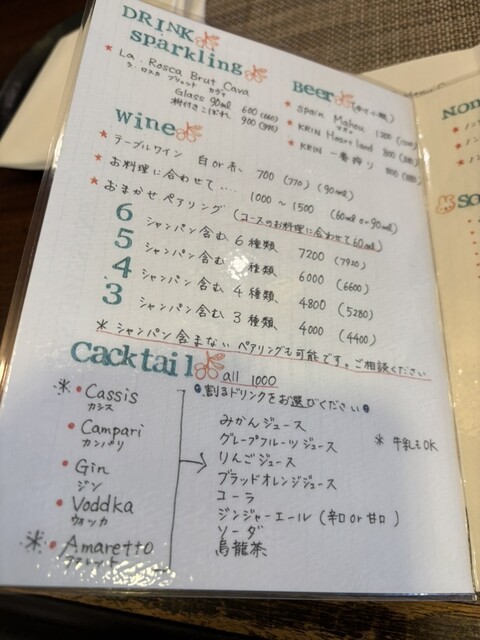 DRINK
sparkling
★ La Rosca Brut Cava
ラ・ロスカ ブリュット カヴァ
Glass 90ml 600 (660)
枡付きこぼれ 900 (990)
Beer
★ Spain Mahou 1200
マオウ
★ KRIN Heartland 800
★ KRIN 一番搾り 800
wine
★ テーブルワイン 白 or 赤、 700 (770) (90ml)
★ お料理に合わせて‥‥ 1000 ~ 1500 (60ml or 90ml)
★ おまかせペアリング (コースのお料理に合わせて60ml)
6 シャンパン含む 6 種類 7200 (7920)
5 シャンパン含む 種類 6000 (6600)
4 シャンパン含む 4 種類、 4800 (5280)
3 シャンパン含む 3 種類、 4000 (4400)
※ シャンパン含まない ペアリングも可能です。ご相談ください
Cacktail all 1000
● 割るドリンクをお選びください ●
※ • Cassis
カシス
• Campari
カンパリ
• Gin
ジン
• Voddka
ウォッカ
※ • Amaretto
みかんジュース
グレープフルーツジュース
りんごジュース
ブラッドオレンジジュース
コーラ
ジンジャーエール (辛口 or 甘口)
ソーダ
烏龍茶
※ 牛乳もOK
NON
SO